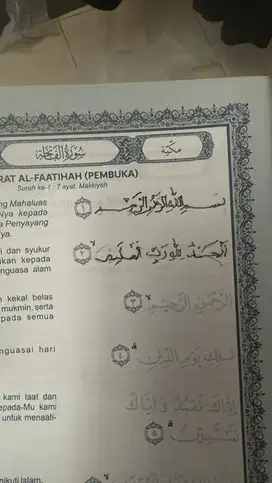 سُورَةُ الْفَاتِحَةِ
مَكِّيَّة
RAT AL-FAATIHAH (PEMBUKA)
Surah ke-1 : 7 ayat, Makkiyah
ng Mahaluas
Nya kepada
a Penyayang
ya.
بِسْمِ اللَّهِ الرَّحْمَٰنِ الرَّحِيمِ ١
i dan syukur
ukan kepada
nguasa alam
الْحَمْدُ لِلَّهِ رَبِّ الْعَالَمِينَ ٢
n kekal belas
mukmin, serta
pada semua
الرَّحْمَٰنِ الرَّحِيمِ ٣
nguasai hari
مَالِكِ يَوْمِ الدِّينِ ٤
kami taat dan
epada-Mu kami
untuk menaati-
إِيَّاكَ نَعْبُدُ وَإِيَّاكَ
نَسْتَعِينُ ٥
ngikuti Islam.